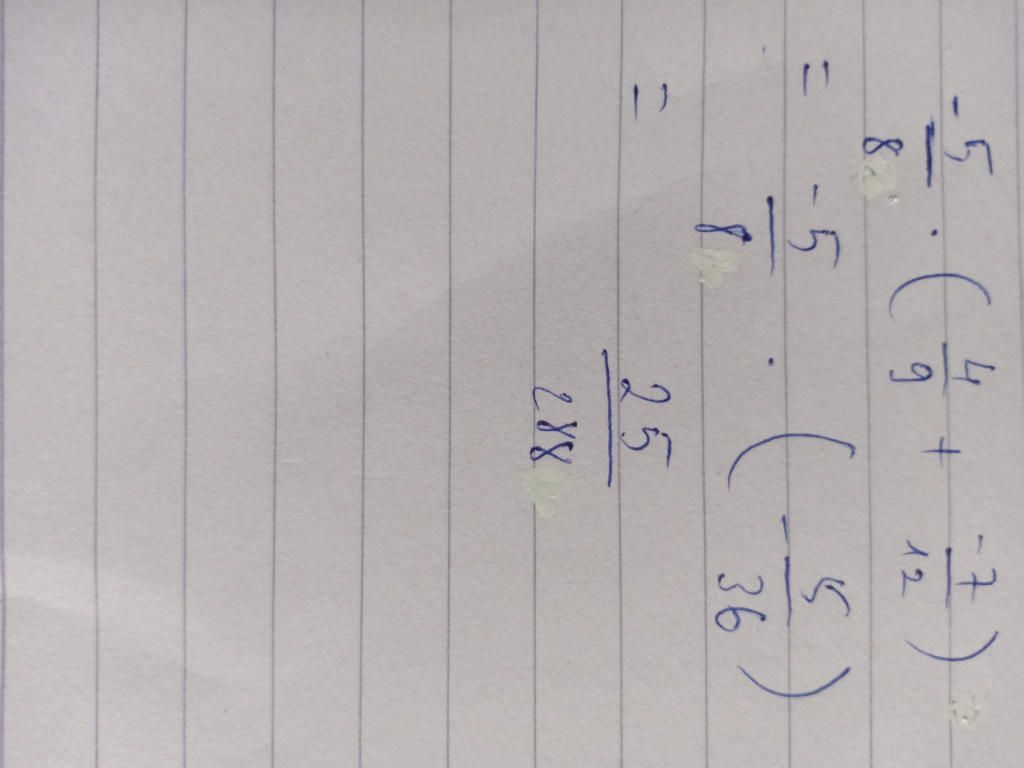 -5/8 · (4/9 + -7/12)
= -5/8 · (-5/36)
= 25/288